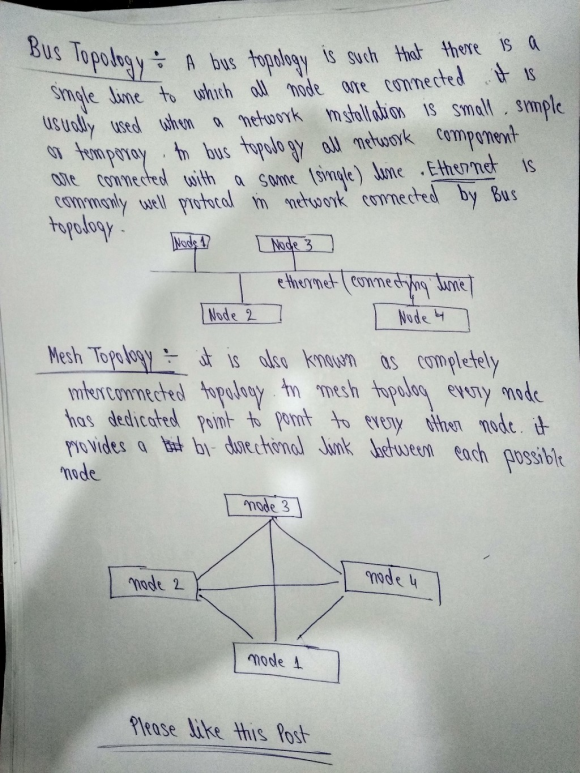 Bus Topology ÷ A bus topology is such that there is a
single line to which all node are connected. it is
usually used when a network installation is small, simple
or temporay. In bus topology all network component
are connected with a same (single) line. Ethernet is
commonly well protocal in network connected by Bus
topology.
Node 1
Node 3
ethernet (connectying line)
Node 2
Node 4
Mesh Topology ÷ it is also known as completely
interconnected topology. In mesh topolog every node
has dedicated point to point to every other node. it
provides a bi-directional link between each possible
node
node 3
node 2
node 4
node 1
Please like this Post